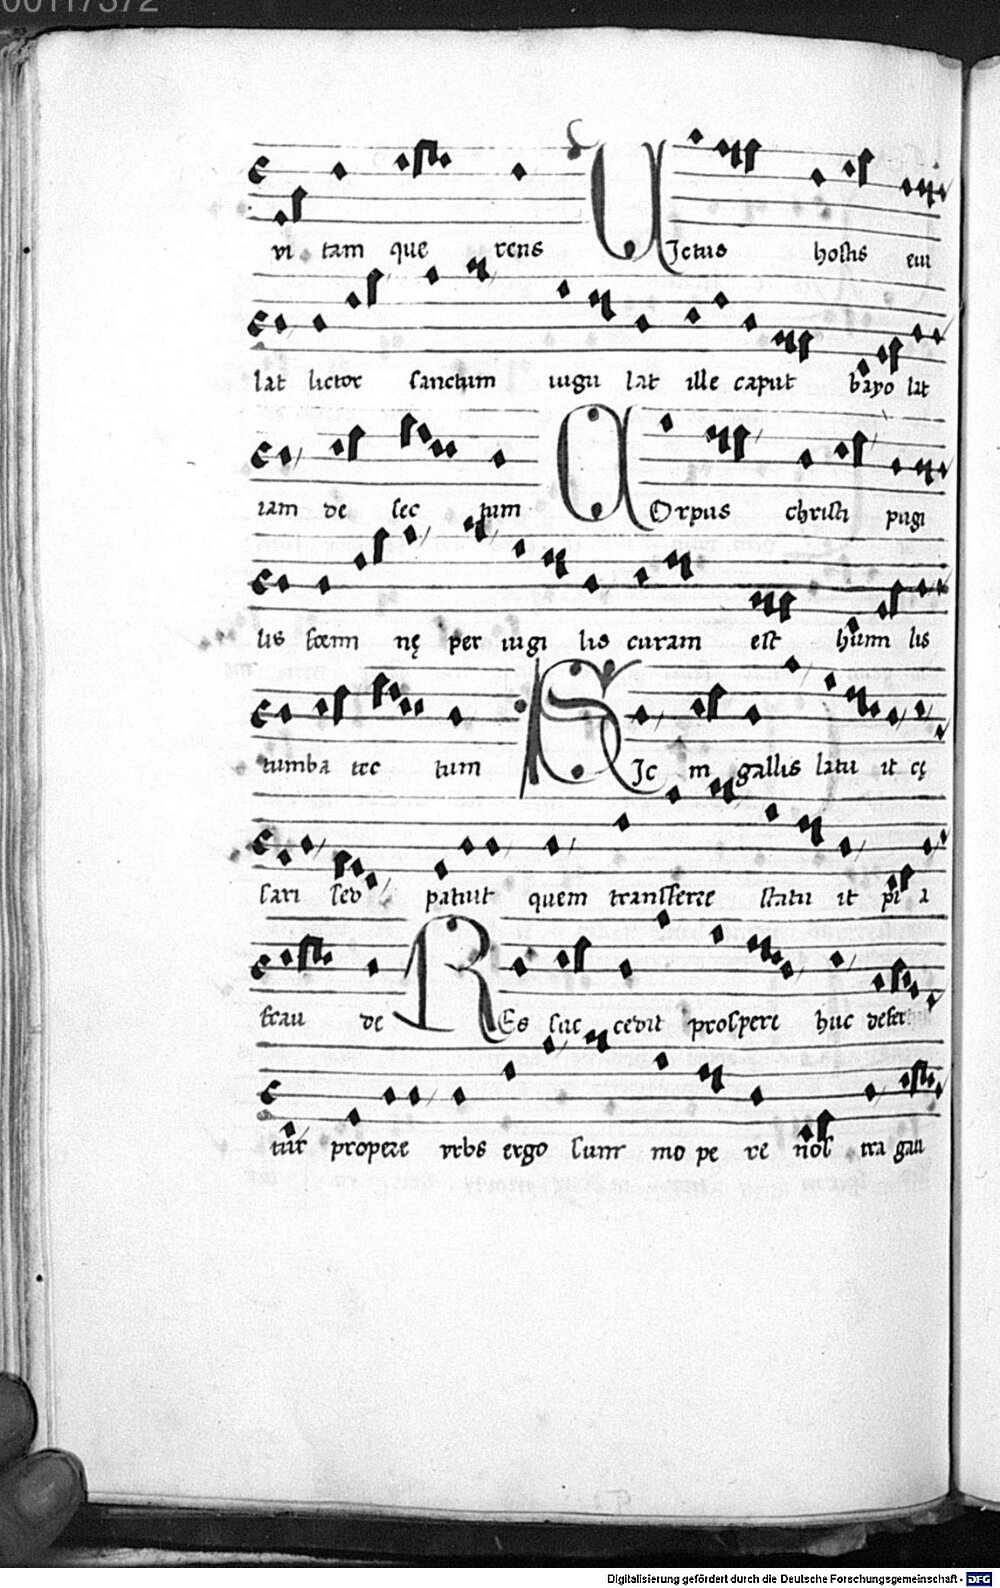 00117372
vi tam que rens UIctus hostis eiu
lat lictor sanctum iugu lat ille caput bayo lat
iam de sec tum COrpus christi pugi
lis foemi nę per uigi lis curam est humi lis
tumba tec tum SIc in gallis latu it cę
sari sed patuit quem transferre statu it pi a
frau de REs suc cedit prospere huc defer
tur propere vrbs ergo sum mo pe re nos tra gau
Digitalisierung gefördert durch die Deutsche Forschungsgemeinschaft - DFG